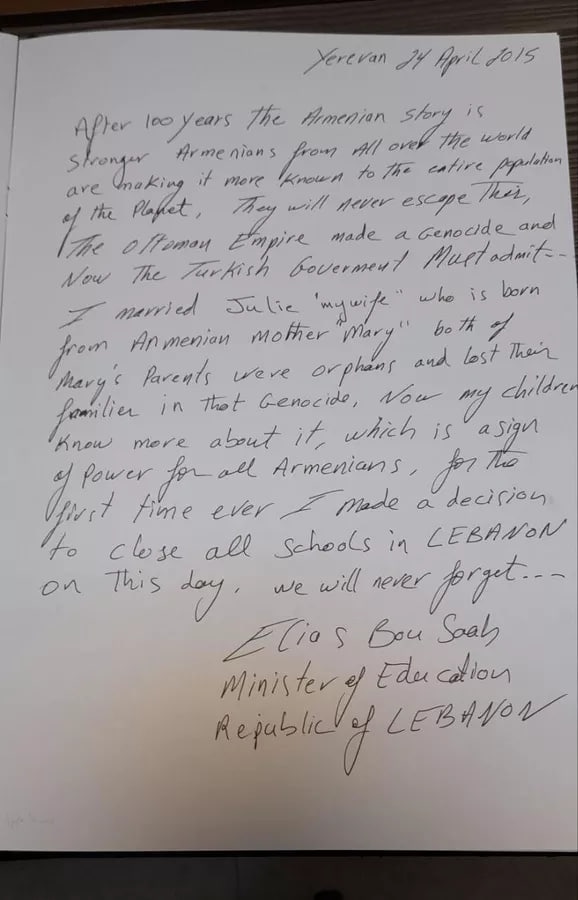 Yerevan 24 April 2015
After 100 years the Armenian story is
stronger Armenians from All over the world
are making it more known to the entire population
of the Planet, They will never escape Their,
The Ottoman Empire made a Genocide and
Now The Turkish Goverment Must admit---
I married Julie "my wife" who is born
from Anmenian mother "Mary" both of
Mary's Parents were orphans and lost Their
families in that Genocide, Now my children
know more about it, which is a sign
of Power for all Armenians, for the
first time ever I made a decision
to close all schools in LEBANON
on This day. we will never forget---
Elias Bou Saab
Minister of Education
Republic of LEBANON